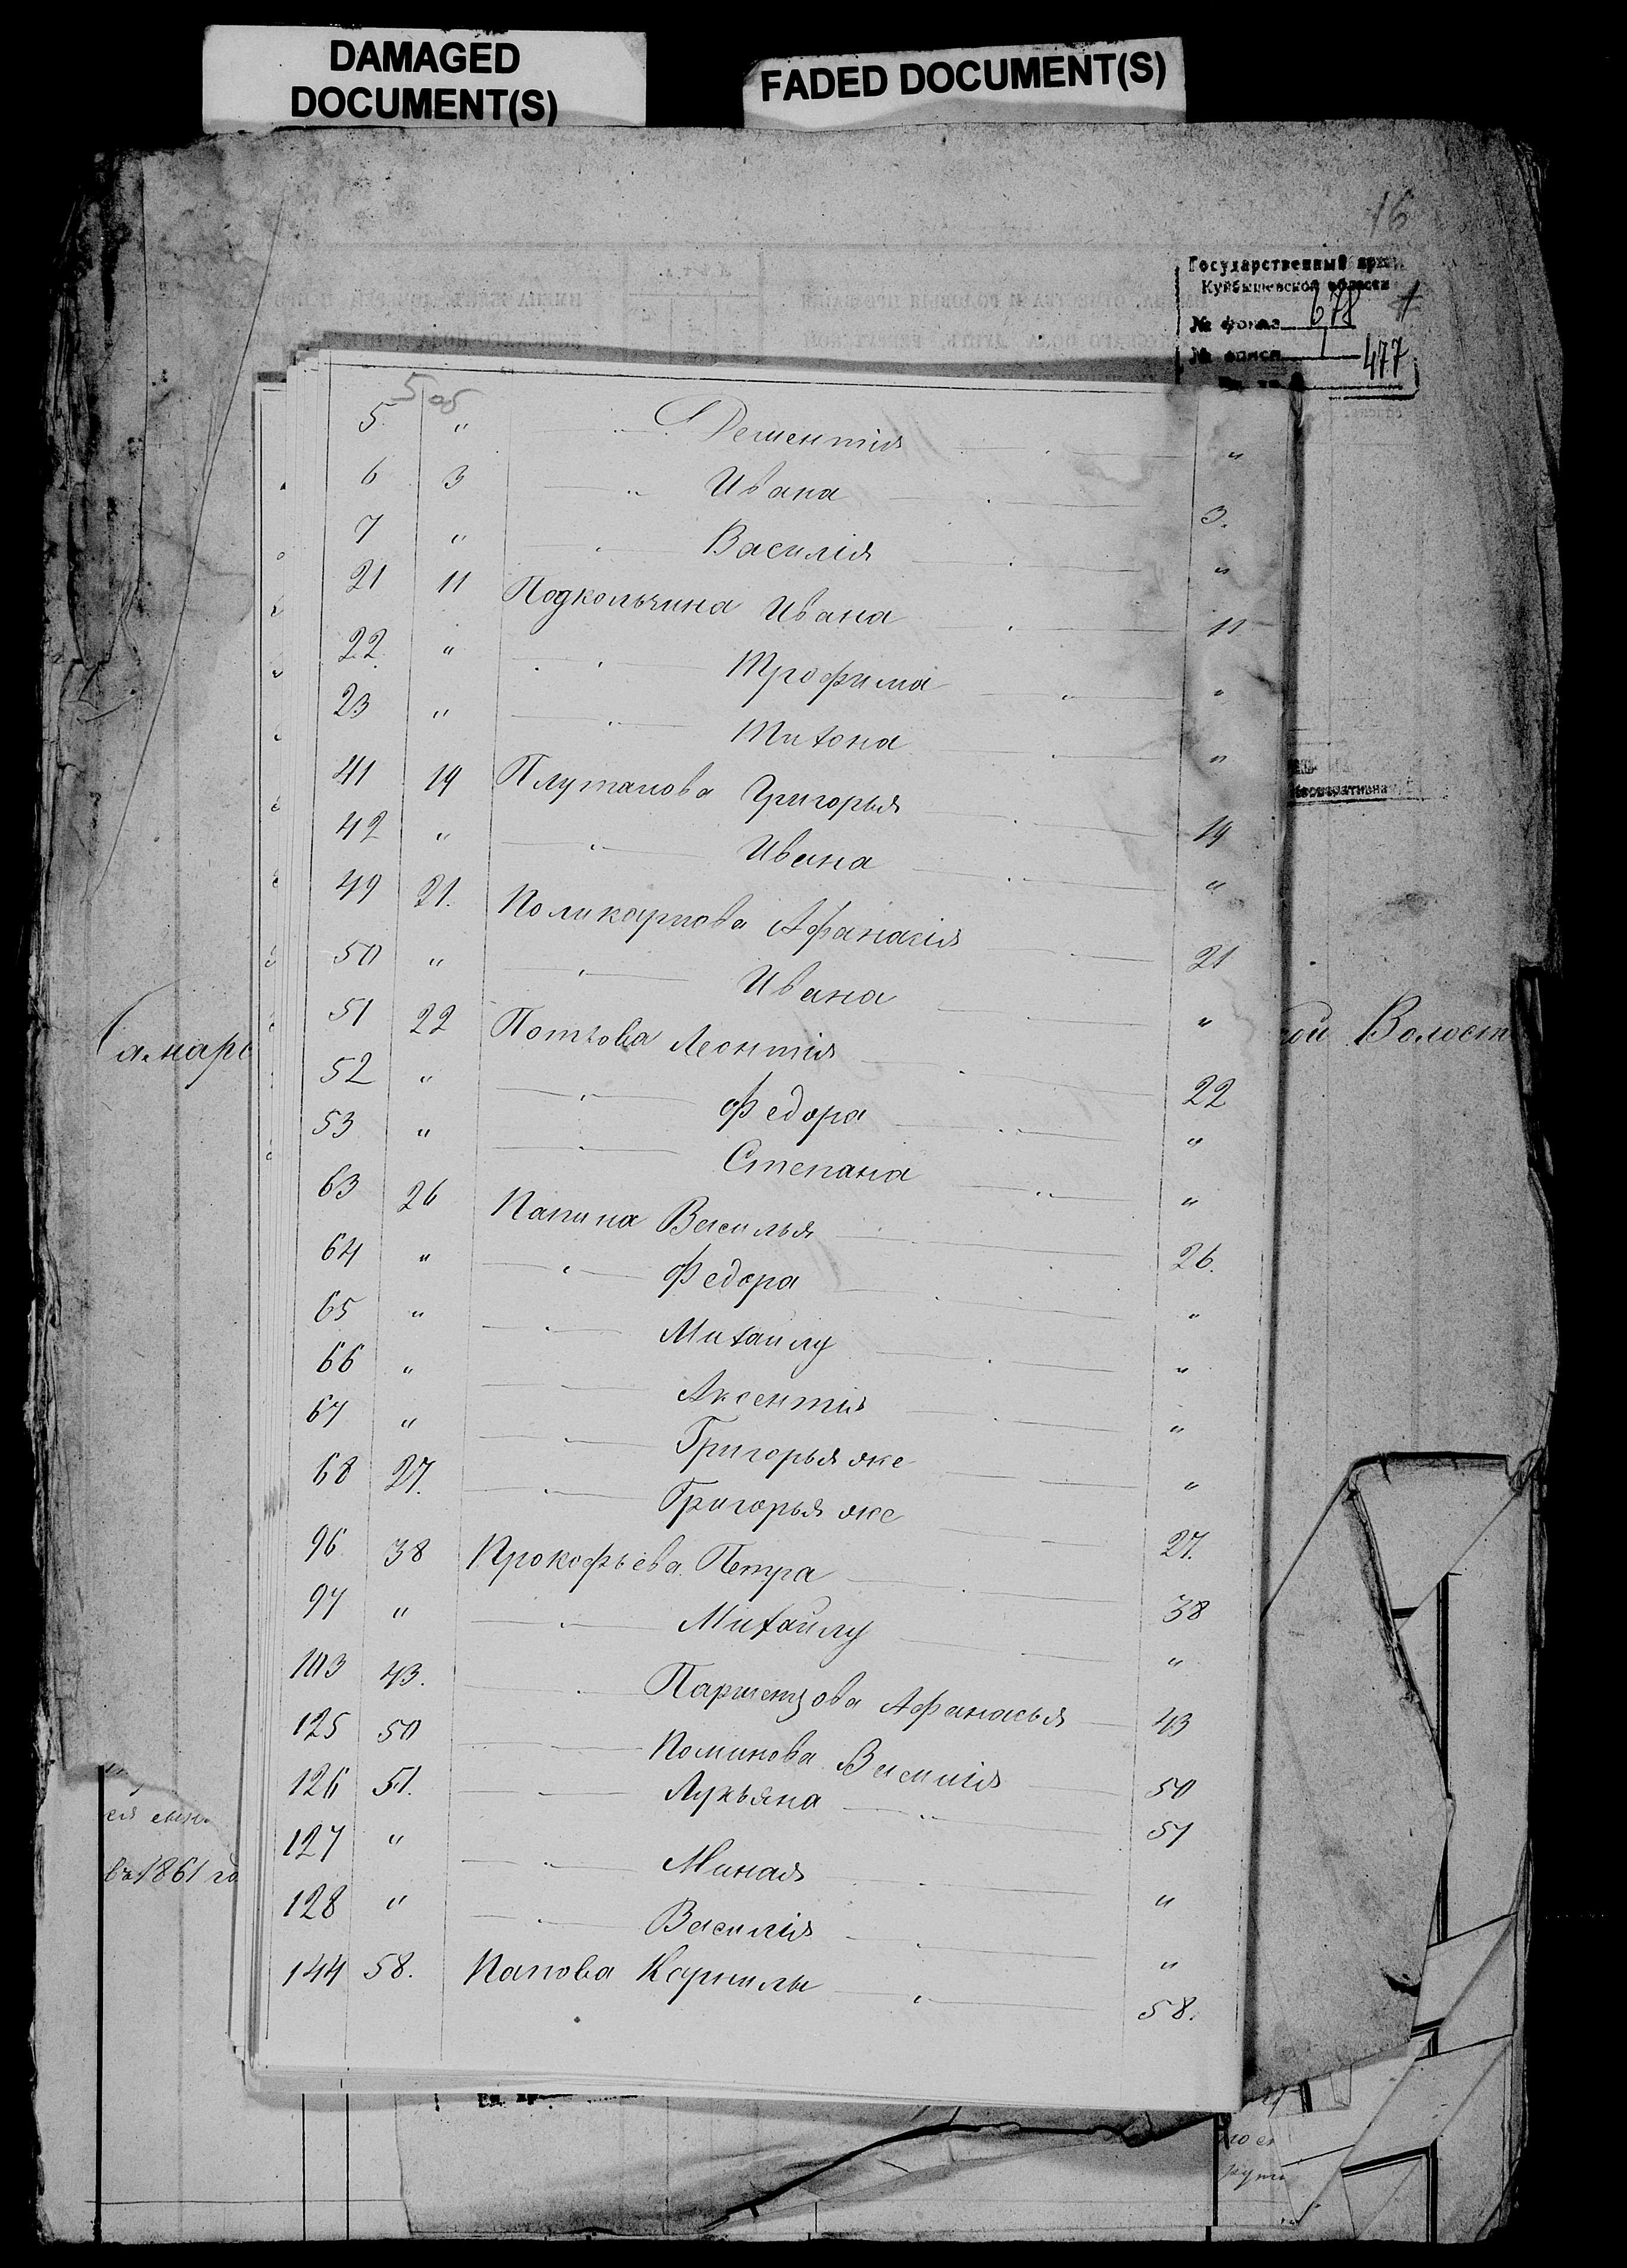 DAMAGED
DOCUMENT(S)
FADED DOCUMENT(S)
16
Государственный архив
Куйбышевской области
№ фонда 678
№ описи 1
477
5 об
5. " Дементія "
6 3 " Ивана 3.
7 " " Василія "
21 11 Подкольчина Ивана 11
22. " " Трофима "
23 " " Тихона "
41 19 Плутанова Григорья 19
42 " " Ивана "
49 21. Поликарпова Афанасія 21
50 " " Ивана "
51 22 Попкова Леонтія 22
52 " " Федора "
53 " " Степана "
63 26 Папина Василья 26.
64 " " Федора "
65 " " Михайлу "
66 " " Аксентія "
67 " " Григорья же "
68 27. " Григорья же 27.
96 38 Прокофьева Петра 38
97 " " Михайлу "
103 43. " Паршенцова Афанасья 43
125 50 Поминова Василія 50
126 51. " Лукьяна " 51
127 " " Миная "
128 " " Василія "
144 58. Папова Карпилы " 58.
Самарс
ой Волост
въ 1861 го